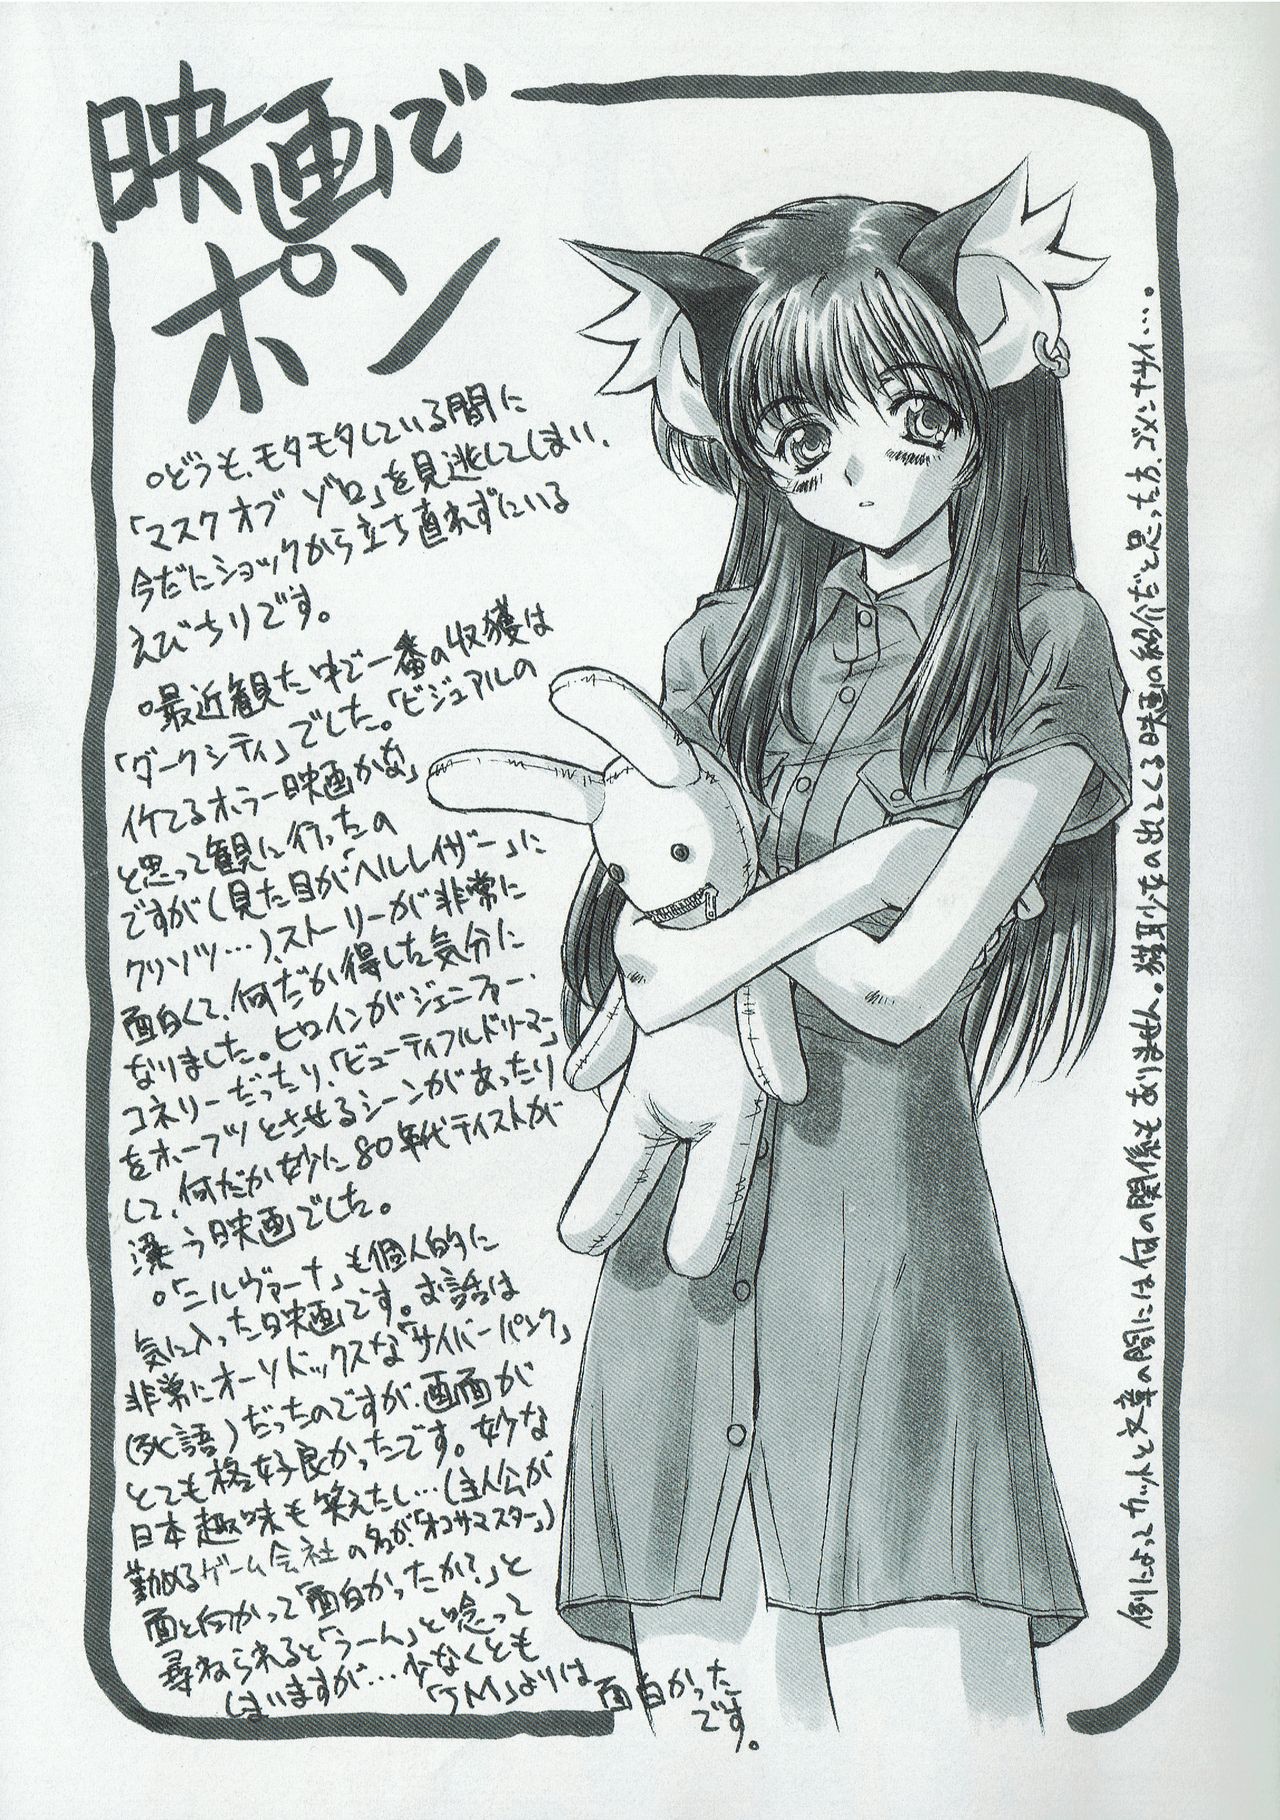 映画で
ポン
○どうも、モタモタしている間に
「マスク オブ ゾロ」を見逃してしまい、
今だにショックから立ち直れずにいる
えびちりです。
○最近観た中で一番の収獲は
「ダークシティ」でした。「ビジュアルの
イケてるホラー映画かな」
と思って観に行ったの
ですが(見た目が「ヘルレイザー」に
クリソツ…)、ストーリーが非常に
面白くて、何だか得した気分に
なりました。ヒロインがジェニファー・
コネリーだったり、「ビューティフルドリーマー」
をホーフツとさせるシーンがあったり
して、何だか妙に80年代テイストが
漂う映画でした。
○「ニルヴァーナ」も個人的に
気に入った映画です。お話は
非常にオーソドックスな「サイバーパンク」
(死語)だったのですが、画面が
とても格好良かったです。妙な
日本趣味も笑えたし…(主人公が
勤めるゲーム会社の名が「オコサマスター」)
面と向かって「面白かったか?」と
尋ねられると「うーん」と唸って
しまいますが…少なくとも
「JM」よりは 面白かった
です。
例によってカットと文章の間には何の関係もありません。猫耳少女の出てくる映画の紹介だと思った方、ゴメンナサイ…。